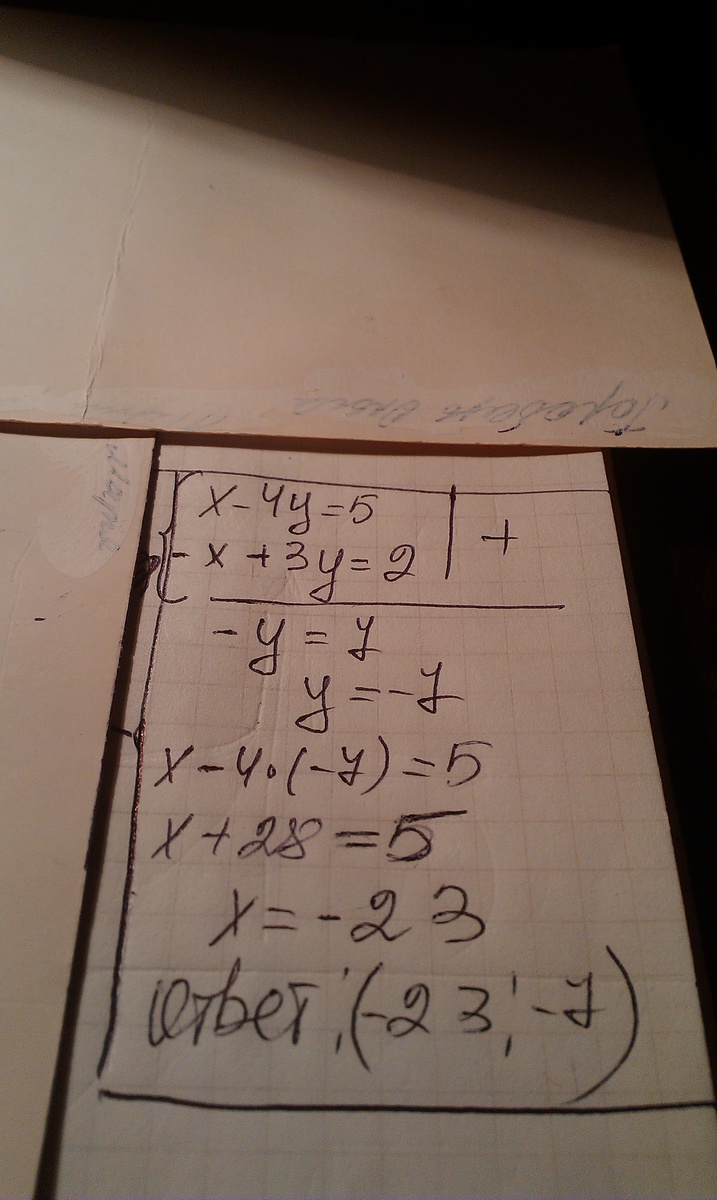 x-4y=5
-x+3y=2 | +
-y=7
y=-7
x-4·(-7)=5
x+28=5
x=-23
Ответ: (-23; -7)